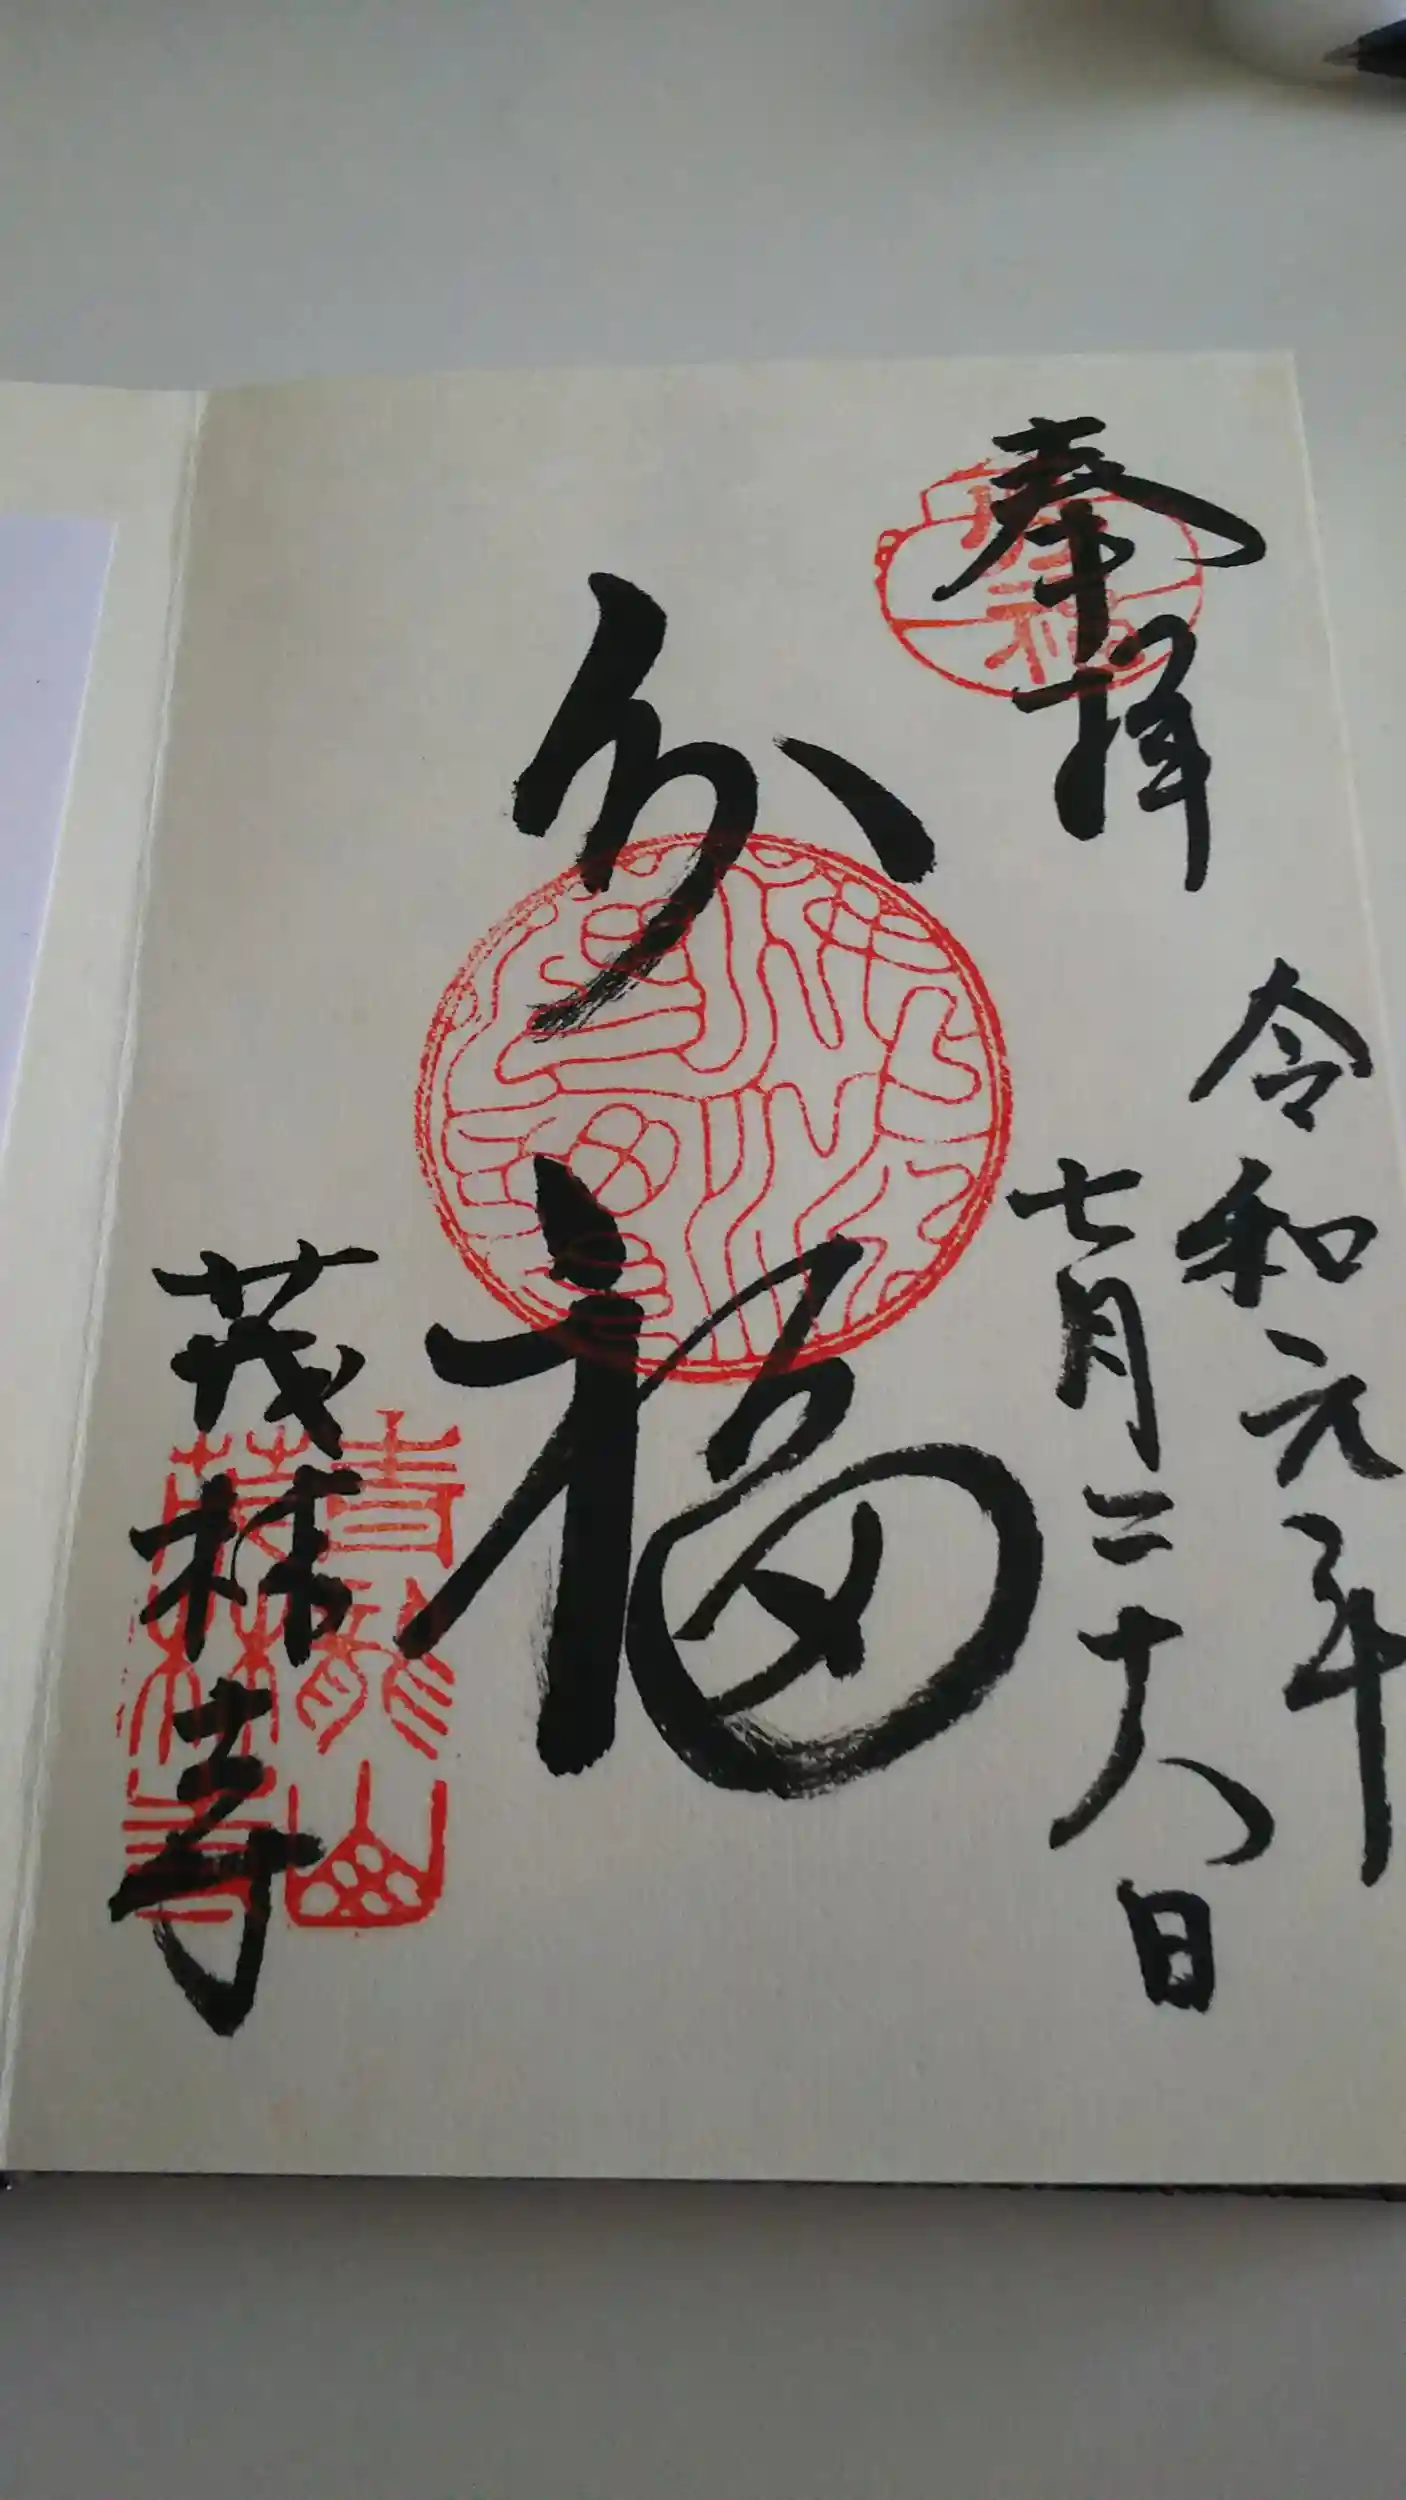 奉拝
令和元年
七月二十八日
分福
茂林寺
青龍山
茂林寺